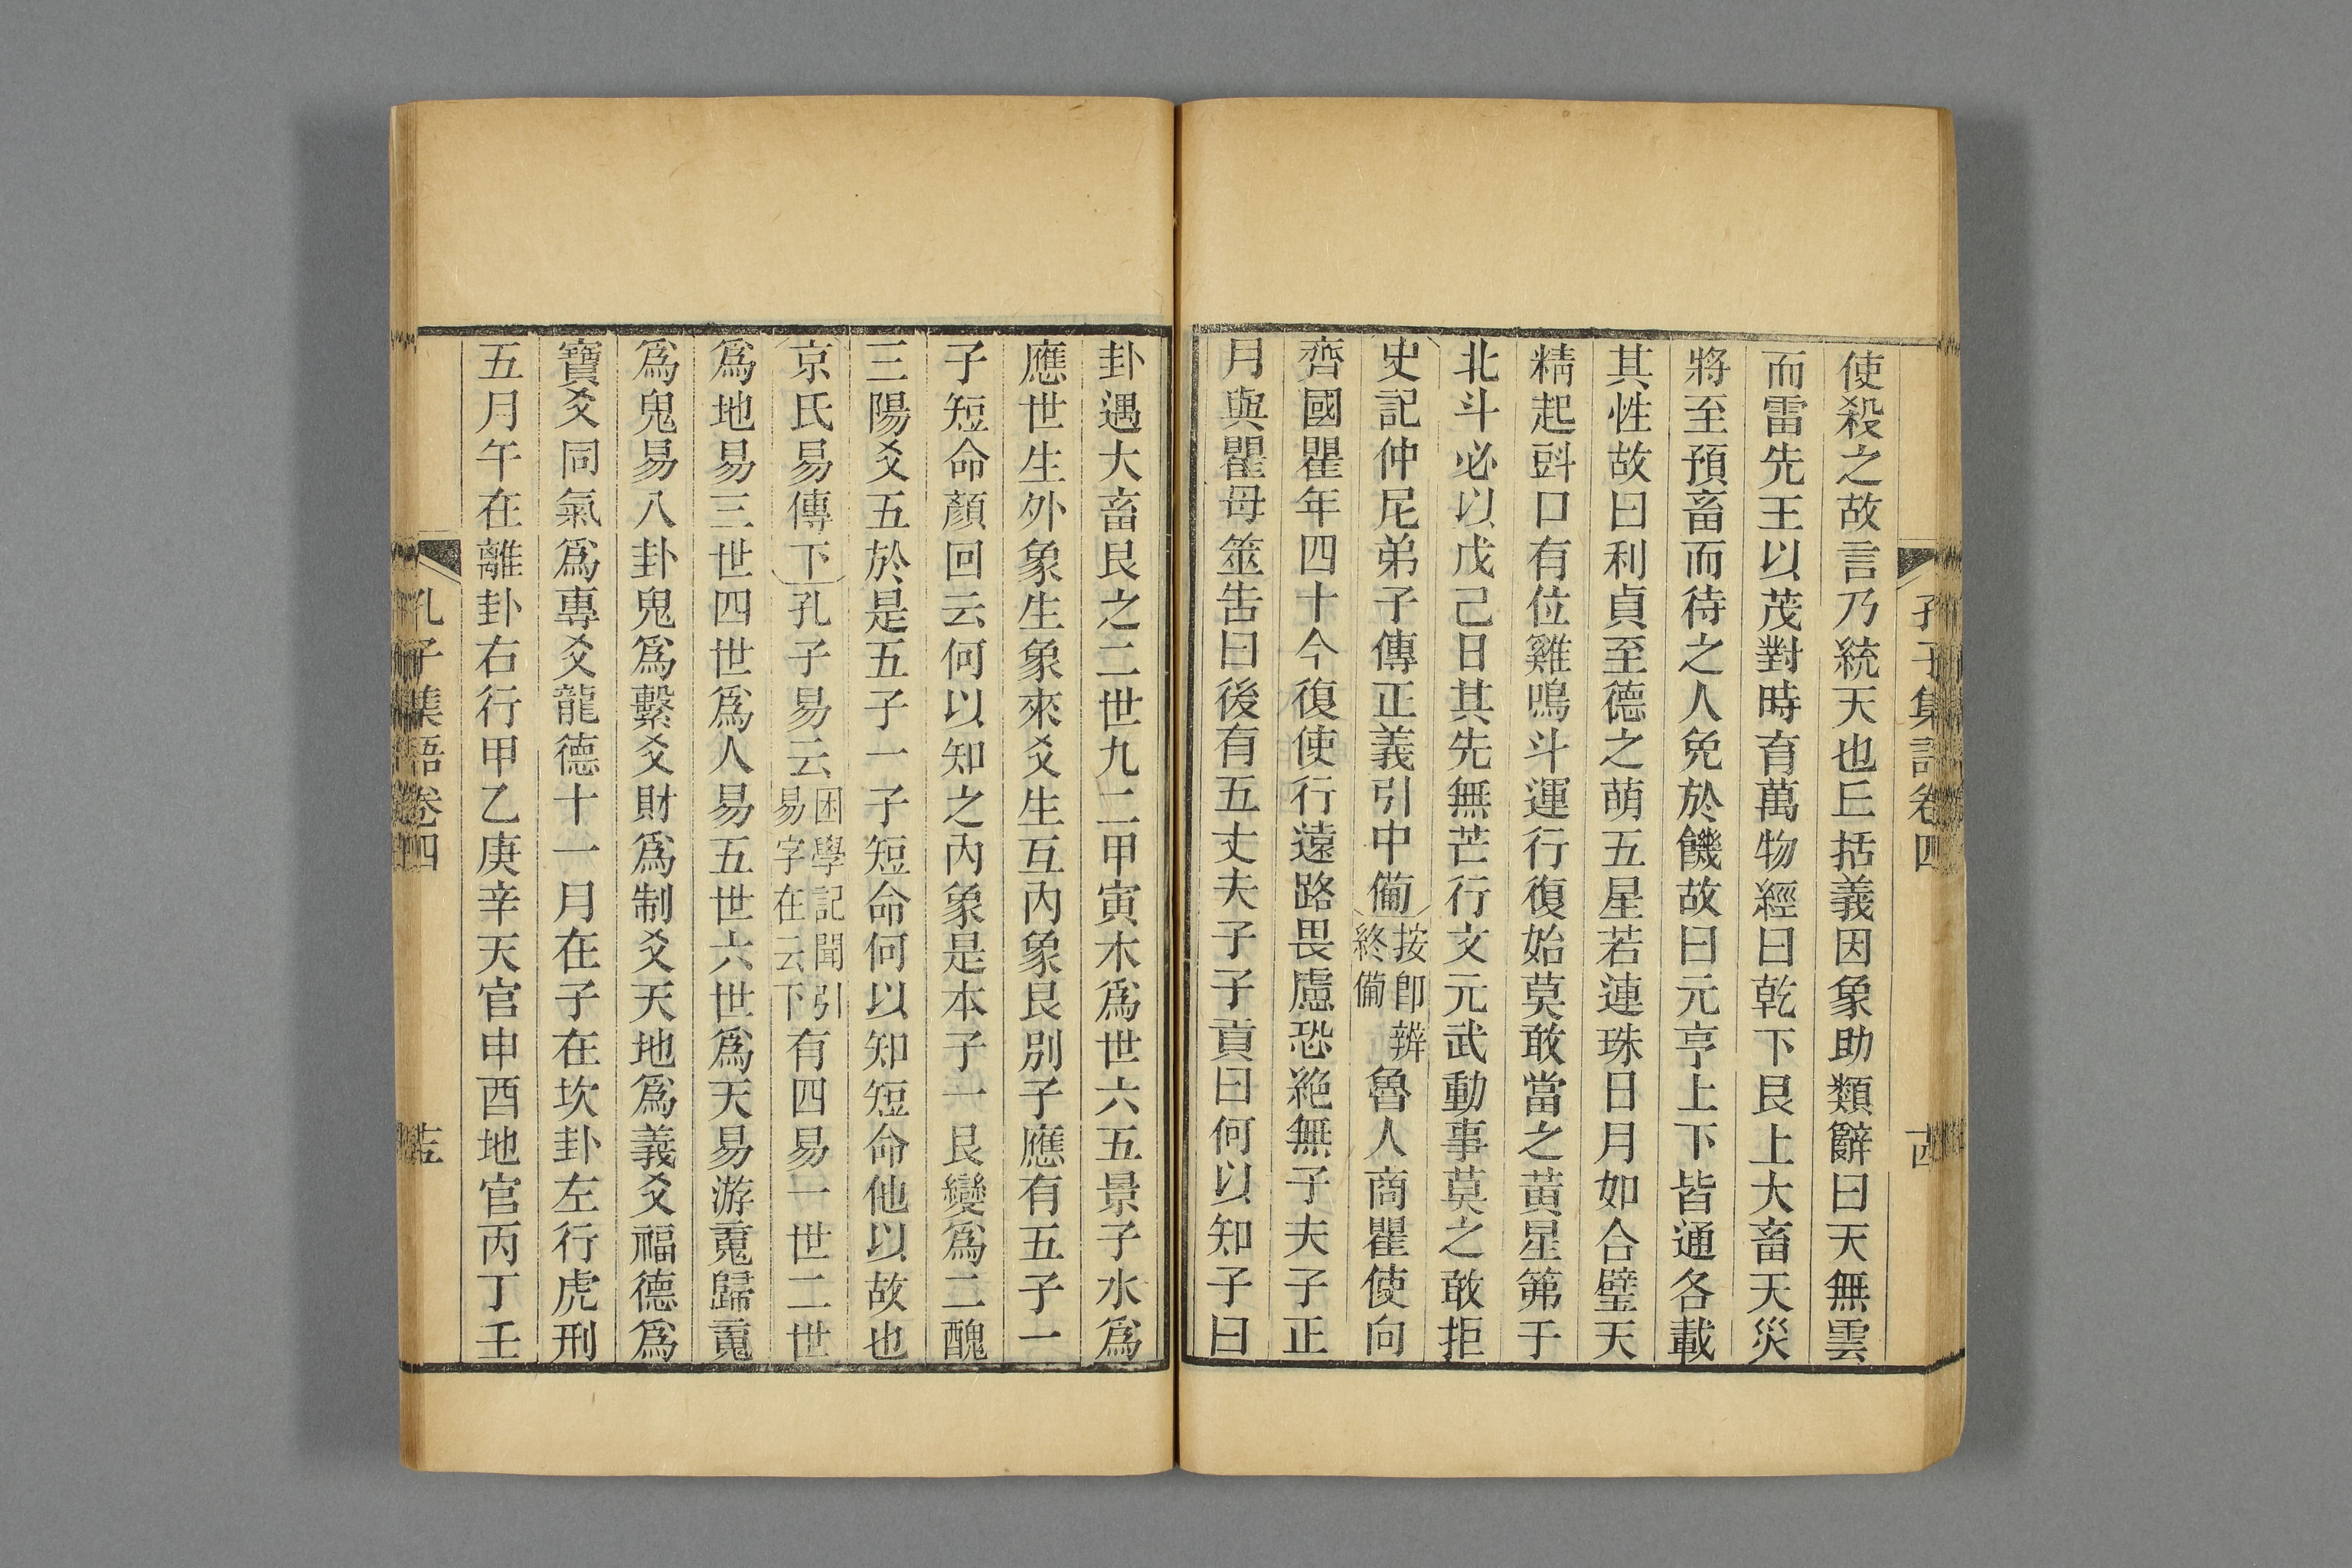 孔子集語卷四
十四
使殺之故言乃統天也丘括義因象助類辭曰天無雲
而雷先王以茂對時育萬物經曰乾下艮上大畜天災
將至預畜而待之人免於饑故曰元亨上下皆通各載
其性故曰利貞至德之萌五星若連珠日月如合璧天
精起斗口有位雞鳴斗運行復始莫敢當之黃星第于
北斗必以戊己日其先無芒行文元武動事莫之敢拒
史記仲尼弟子傳正義引中備按卽辨終備魯人商瞿使向
齊國瞿年四十今復使行遠路畏慮恐絶無子夫子正
月與瞿母筮告曰後有五丈夫子子貢曰何以知子曰
卦遇大畜艮之二世九二甲寅木爲世六五景子水爲
應世生外象生象來爻生互內象艮別子應有五子一
子短命顏回云何以知之內象是本子一艮變爲二醜
三陽爻五於是五子一子短命何以知短命他以故也
京氏易傳下孔子易云困學記聞引易字在云下有四易一世二世
爲地易三世四世爲人易五世六世爲天易游䰟歸䰟
爲鬼易八卦鬼爲繫爻財爲制爻天地爲義爻福德爲
寶爻同氣爲專爻龍德十一月在子在坎卦左行虎刑
五月午在離卦右行甲乙庚辛天官申酉地官丙丁壬
孔子集語卷四
十五